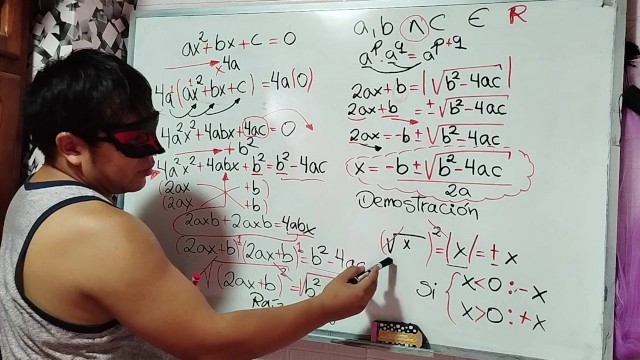 ax² + bx + c = 0
x 4a
4a(ax² + bx + c) = 4a(0)
4a²x² + 4abx + 4ac = 0
+ b²
4a²x² + 4abx + b² = b² - 4ac
(2ax +b)
(2ax +b)
2axb + 2axb = 4abx
(2ax+b)¹(2ax+b)¹ = b² - 4ac
√(2ax+b)² = √b²
a, b ∧ C ∈ R
aᵖ · a^q = a^(p+q)
2ax + b = |√b² - 4ac|
2ax + b = ±√b² - 4ac
2ax = -b ± √b² - 4ac
x = -b ± √b² - 4ac
2a
Demostración
(√x)² = |x| = ± x
Si { x<0 : - x
x>0 : + x